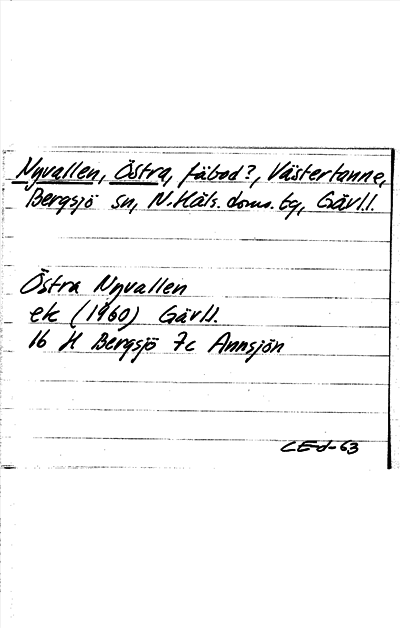 Nyvallen, Östra, fäbod?, Västertanne,
Bergsjö sn, N. Häls. doms. tg, Gävl.l.
Östra Nyvallen
ek (1960) Gävl.l.
16 H Bergsjö 7c Annsjön
CEd-63